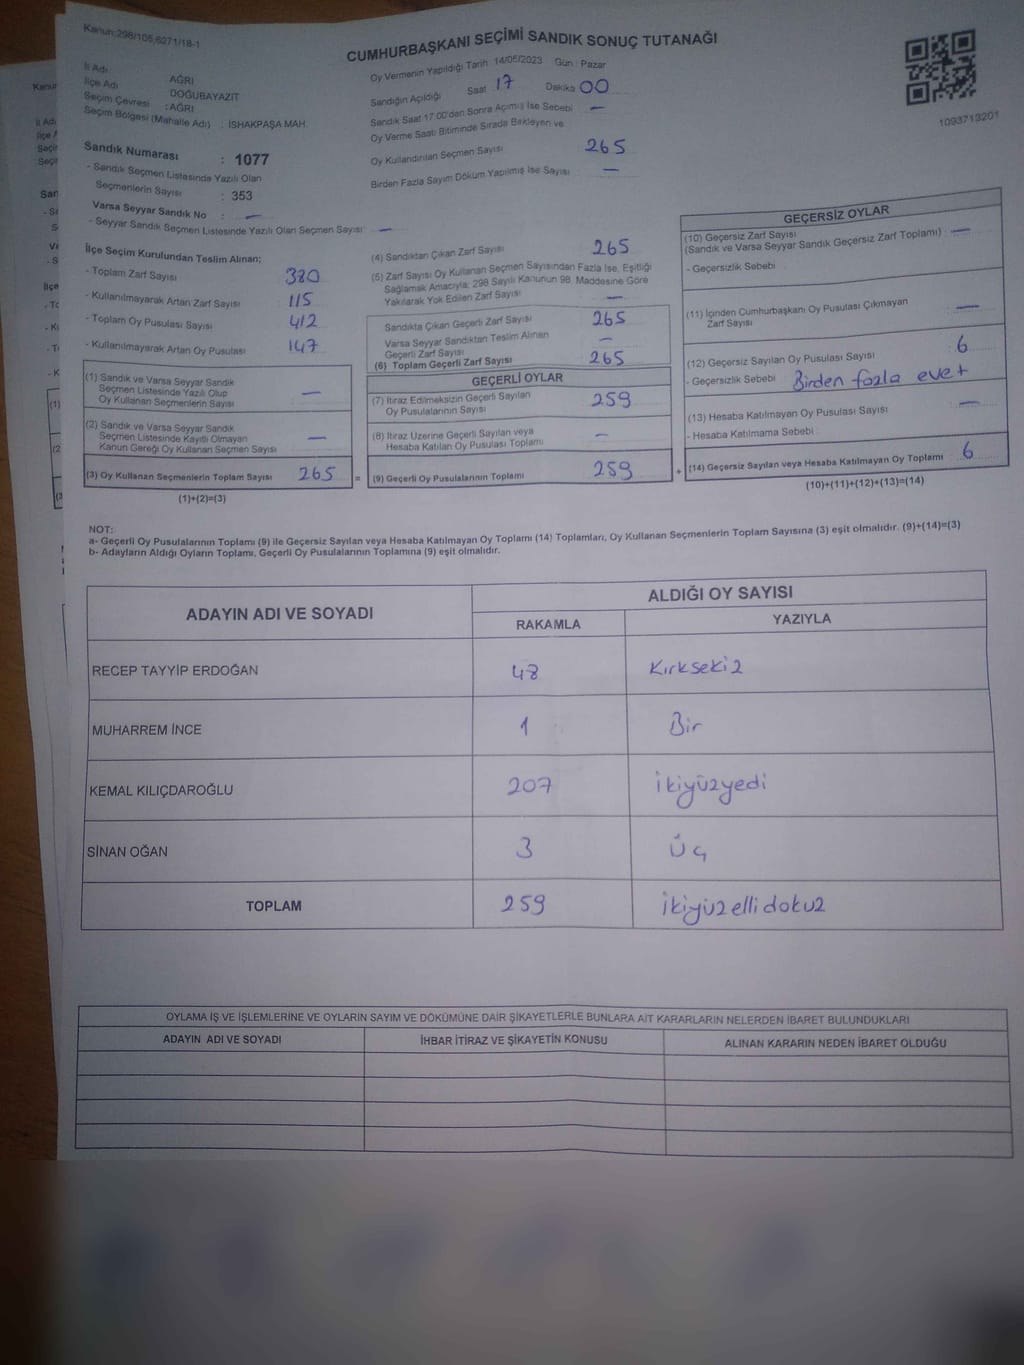 Kanun:298/105,6271/18-1
CUMHURBAŞKANI SEÇİMİ SANDIK SONUÇ TUTANAĞI
İl Adı AĞRI
İlçe Adı DOĞUBAYAZIT
Seçim Çevresi : AĞRI
Seçim Bölgesi (Mahalle Adı) : İSHAKPAŞA MAH.
Sandık Numarası : 1077
- Sandık Seçmen Listesinde Yazılı Olan
Seçmenlerin Sayısı : 353
Varsa Seyyar Sandık No : —
- Seyyar Sandık Seçmen Listesinde Yazılı Olan Seçmen Sayısı: —
Oy Vermenin Yapıldığı Tarih 14/05/2023 Gün : Pazar
Sandığın Açıldığı Saat 17 Dakika 00
Sandık Saat 17.00'dan Sonra Açımış İse Sebebi —
Oy Verme Saati Bitiminde Sırada Bekleyen ve
Oy Kullandırılan Seçmen Sayısı 265
Birden Fazla Sayım Döküm Yapılmış İse Sayısı —
1093713201
İlçe Seçim Kurulundan Teslim Alınan;
- Toplam Zarf Sayısı 380
- Kullanılmayarak Artan Zarf Sayısı 115
- Toplam Oy Pusulası Sayısı 412
- Kullanılmayarak Artan Oy Pusulası 147
(1) Sandık ve Varsa Seyyar Sandık
Seçmen Listesinde Yazılı Olup
Oy Kullanan Seçmenlerin Sayısı —
(2) Sandık ve Varsa Seyyar Sandık
Seçmen Listesinde Kayıtlı Olmayan
Kanun Gereği Oy Kullanan Seçmen Sayısı —
(3) Oy Kullanan Seçmenlerin Toplam Sayısı 265 =
(1)+(2)=(3)
(4) Sandıktan Çıkan Zarf Sayısı 265
(5) Zarf Sayısı Oy Kullanan Seçmen Sayısından Fazla İse, Eşitliği
Sağlamak Amacıyla; 298 Sayılı Kanunun 98. Maddesine Göre
Yakılarak Yok Edilen Zarf Sayısı —
Sandıkta Çıkan Geçerli Zarf Sayısı 265
Varsa Seyyar Sandıktan Teslim Alınan
Geçerli Zarf Sayısı —
(6) Toplam Geçerli Zarf Sayısı 265
GEÇERLİ OYLAR
(7) İtiraz Edilmeksizin Geçerli Sayılan
Oy Pusulalarının Sayısı 259
(8) İtiraz Üzerine Geçerli Sayılan veya
Hesaba Katılan Oy Pusulası Toplamı —
(9) Geçerli Oy Pusulalarının Toplamı 259 +
GEÇERSİZ OYLAR
(10) Geçersiz Zarf Sayısı
(Sandık ve Varsa Seyyar Sandık Geçersiz Zarf Toplamı) : —
- Geçersizlik Sebebi :
(11) İçinden Cumhurbaşkanı Oy Pusulası Çıkmayan
Zarf Sayısı —
(12) Geçersiz Sayılan Oy Pusulası Sayısı 6
- Geçersizlik Sebebi Birden fazla evet
(13) Hesaba Katılmayan Oy Pusulası Sayısı —
- Hesaba Katılmama Sebebi :
(14) Geçersiz Sayılan veya Hesaba Katılmayan Oy Toplamı 6
(10)+(11)+(12)+(13)=(14)
NOT:
a- Geçerli Oy Pusulalarının Toplamı (9) ile Geçersiz Sayılan veya Hesaba Katılmayan Oy Toplamı (14) Toplamları, Oy Kullanan Seçmenlerin Toplam Sayısına (3) eşit olmalıdır. (9)+(14)=(3)
b- Adayların Aldığı Oyların Toplamı, Geçerli Oy Pusulalarının Toplamına (9) eşit olmalıdır.
ADAYIN ADI VE SOYADI ALDIĞI OY SAYISI
RAKAMLA YAZIYLA
RECEP TAYYİP ERDOĞAN 48 Kırksekiz
MUHARREM İNCE 1 Bir
KEMAL KILIÇDAROĞLU 207 ikiyüzyedi
SİNAN OĞAN 3 Üç
TOPLAM 259 ikiyüzellidokuz
OYLAMA İŞ VE İŞLEMLERİNE VE OYLARIN SAYIM VE DÖKÜMÜNE DAİR ŞİKAYETLERLE BUNLARA AİT KARARLARIN NELERDEN İBARET BULUNDUKLARI
ADAYIN ADI VE SOYADI İHBAR İTİRAZ VE ŞİKAYETİN KONUSU ALINAN KARARIN NEDEN İBARET OLDUĞU